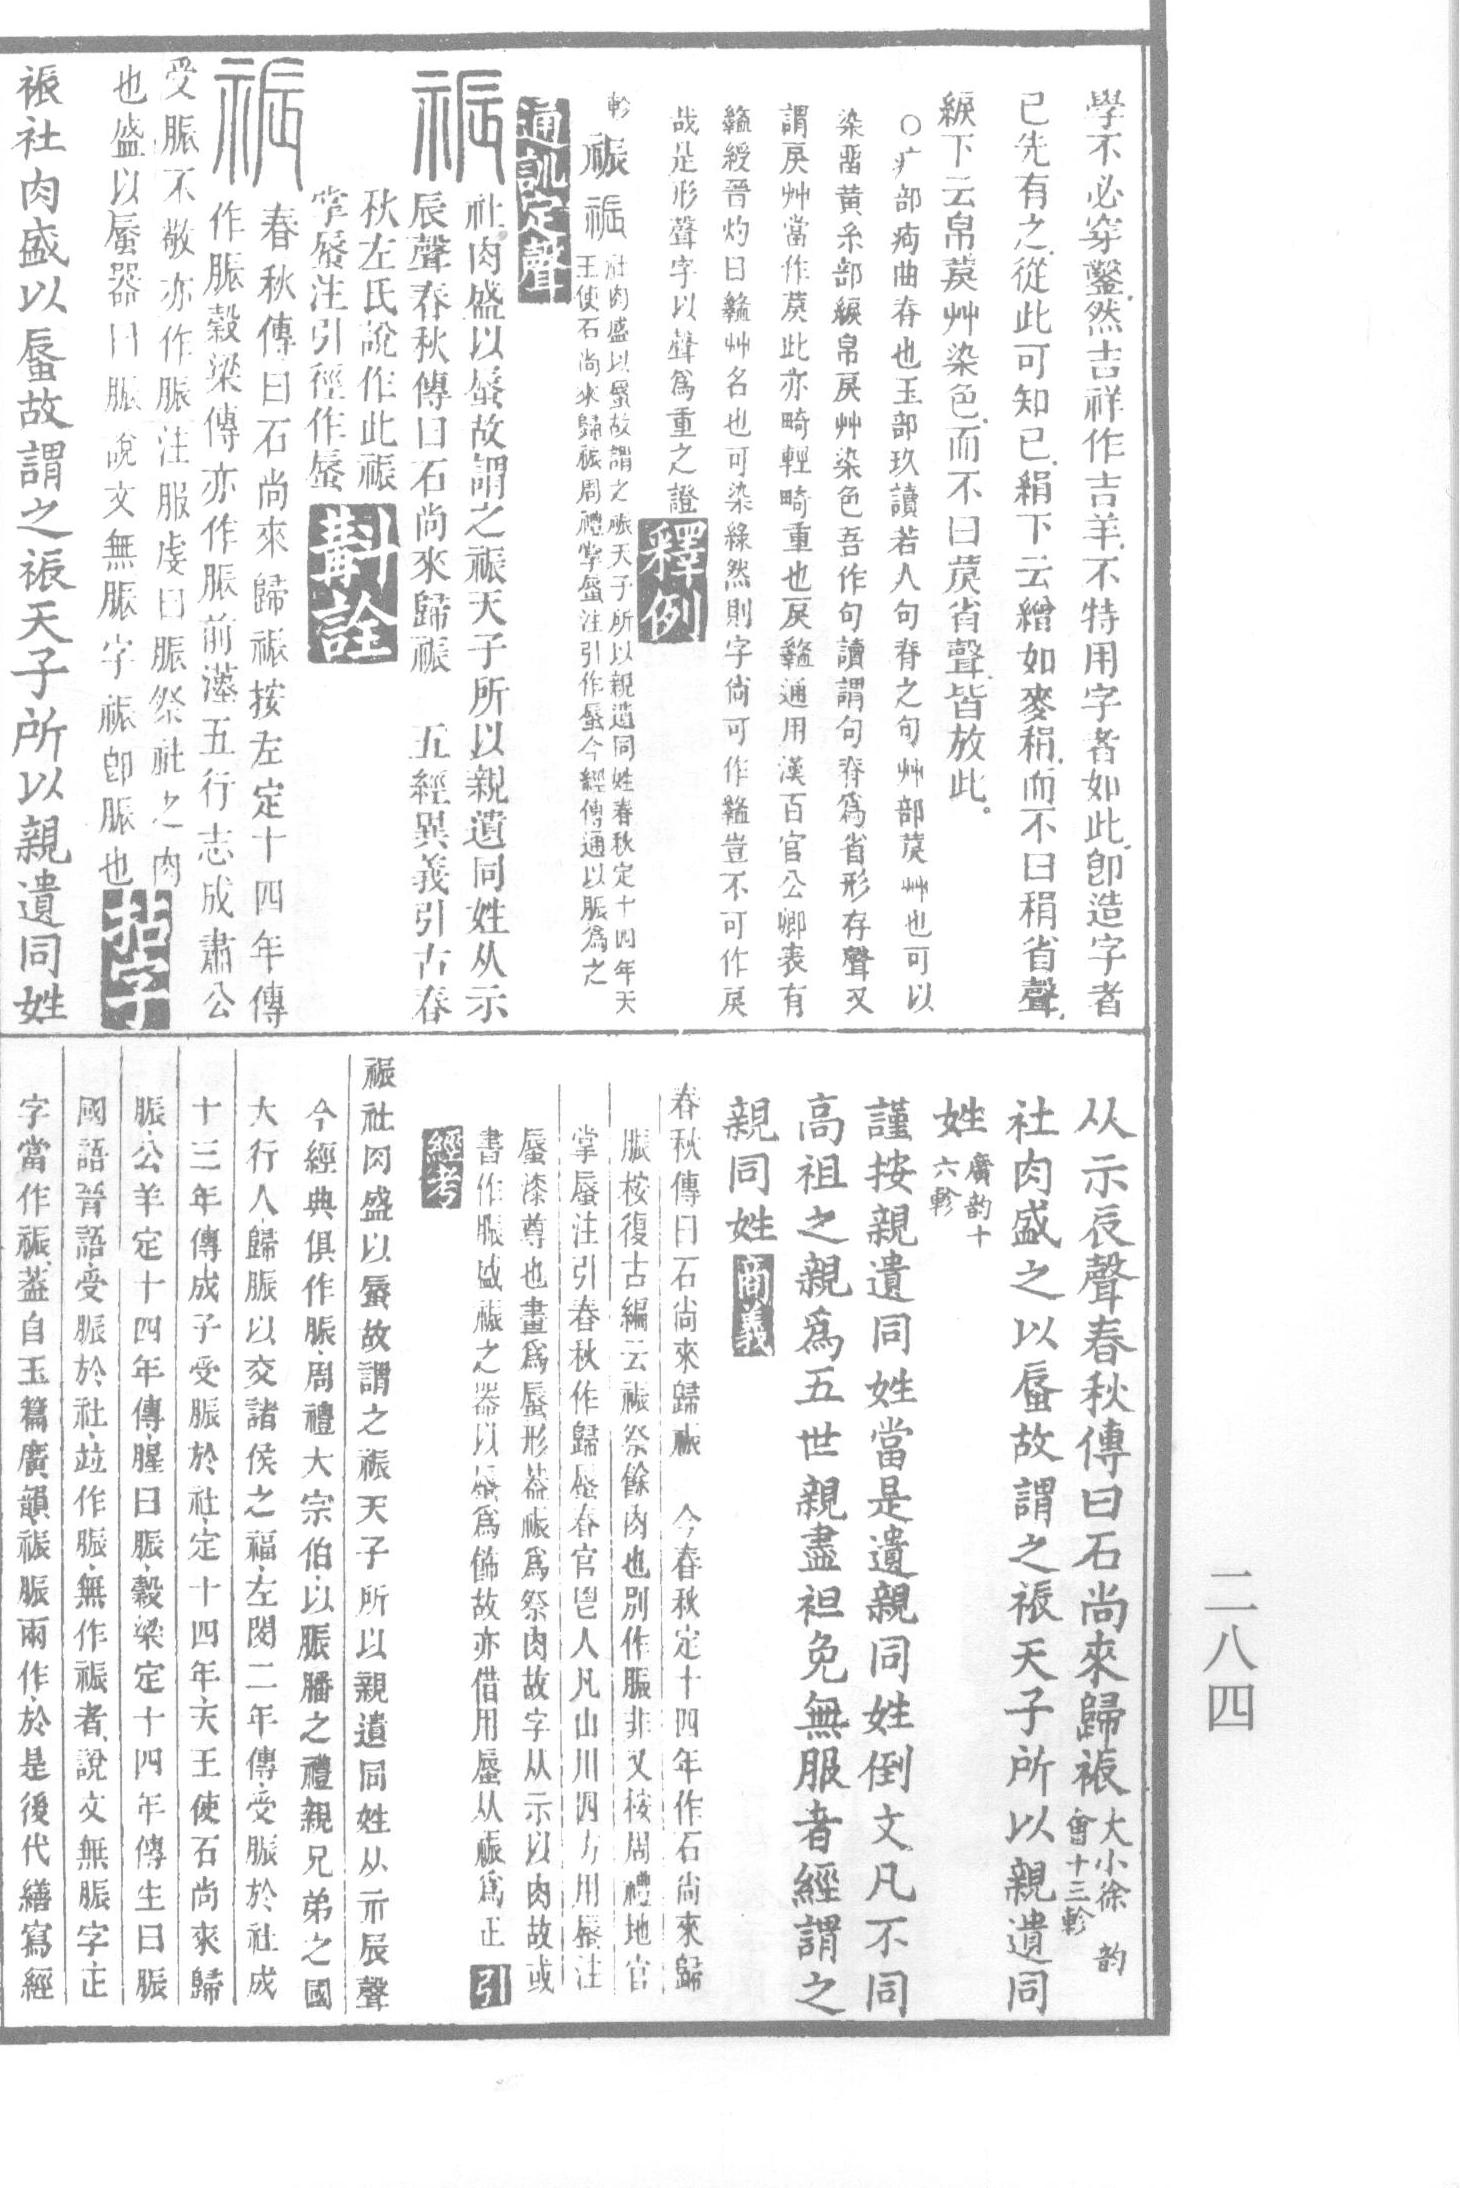 學不必穿鑿然吉祥作吉羊不特用字者如此卽造字者
已先有之從此可知已絹下云繒如麥䅌而不曰䅌省聲
綟下云帛䓞艸染色而不曰䓞省聲皆放此
○疒部痀曲脊也玉部玖讀若人句脊之句艸部䓞艸也可以
染畱黃糸部綟帛戾艸染色吾作句讀謂句脊爲省形存聲又
謂戾艸當作䓞此亦畸輕畸重也戾盭通用漢百官公卿表有
盭綬晉灼曰盭艸名也可染綠然則字尙可作盭豈不可作戾
哉是形聲字以聲爲重之證釋例
軫祳祳社肉盛以蜃故謂之祳天子所以親遺同姓春秋定十四年天
王使石尙來歸祳周禮掌蜃注引作蜃今經傳通以脤爲之
通訓定聲
祳社肉盛以蜃故謂之祳天子所以親遺同姓从示
辰聲春秋傳曰石尙來歸祳 五經異義引古春
秋左氏說作此祳
掌蜃注引徑作蜃斠詮
祳春秋傳曰石尙來歸祳按左定十四年傳
作脤穀梁傳亦作脤前漢五行志成肅公
受脤不敬亦作脤注服虔曰脤祭社之肉
也盛以蜃器曰脤說文無脤字祳卽脤也拈字
祳社肉盛以蜃故謂之祳天子所以親遺同姓
从示辰聲春秋傳曰石尚來歸祳大小徐 韵會十三軫
社肉盛之以蜃故謂之祳天子所以親遺同
姓廣韵十六軫
謹按親遺同姓當是遺親同姓倒文凡不同
高祖之親爲五世親盡袒免無服者經謂之
親同姓商義
春秋傳曰石尙來歸祳 今春秋定十四年作石尙來歸
脤桉復古編云祳祭餘肉也別作脤非又桉周禮地官
掌蜃注引春秋作歸蜃春官鬯人凡山川四方用蜃注
蜃漆尊也畫爲蜃形葢祳爲祭肉故字从示以肉故或
書作脤盛祳之器以蜃爲飾故亦借用蜃从祳爲正引
經考
祳社肉盛以蜃故謂之祳天子所以親遺同姓从示辰聲
今經典俱作脤周禮大宗伯以脤膰之禮親兄弟之國
大行人歸脤以交諸侯之福左閔二年傳受脤於社成
十三年傳成子受脤於社定十四年天王使石尚來歸
脤公羊定十四年傳腥曰脤穀梁定十四年傳生曰脤
國語晉語受脤於社竝作脤無作祳者說文無脤字正
字當作祳葢自玉篇廣韻祳脤兩作於是後代繕寫經
二八四